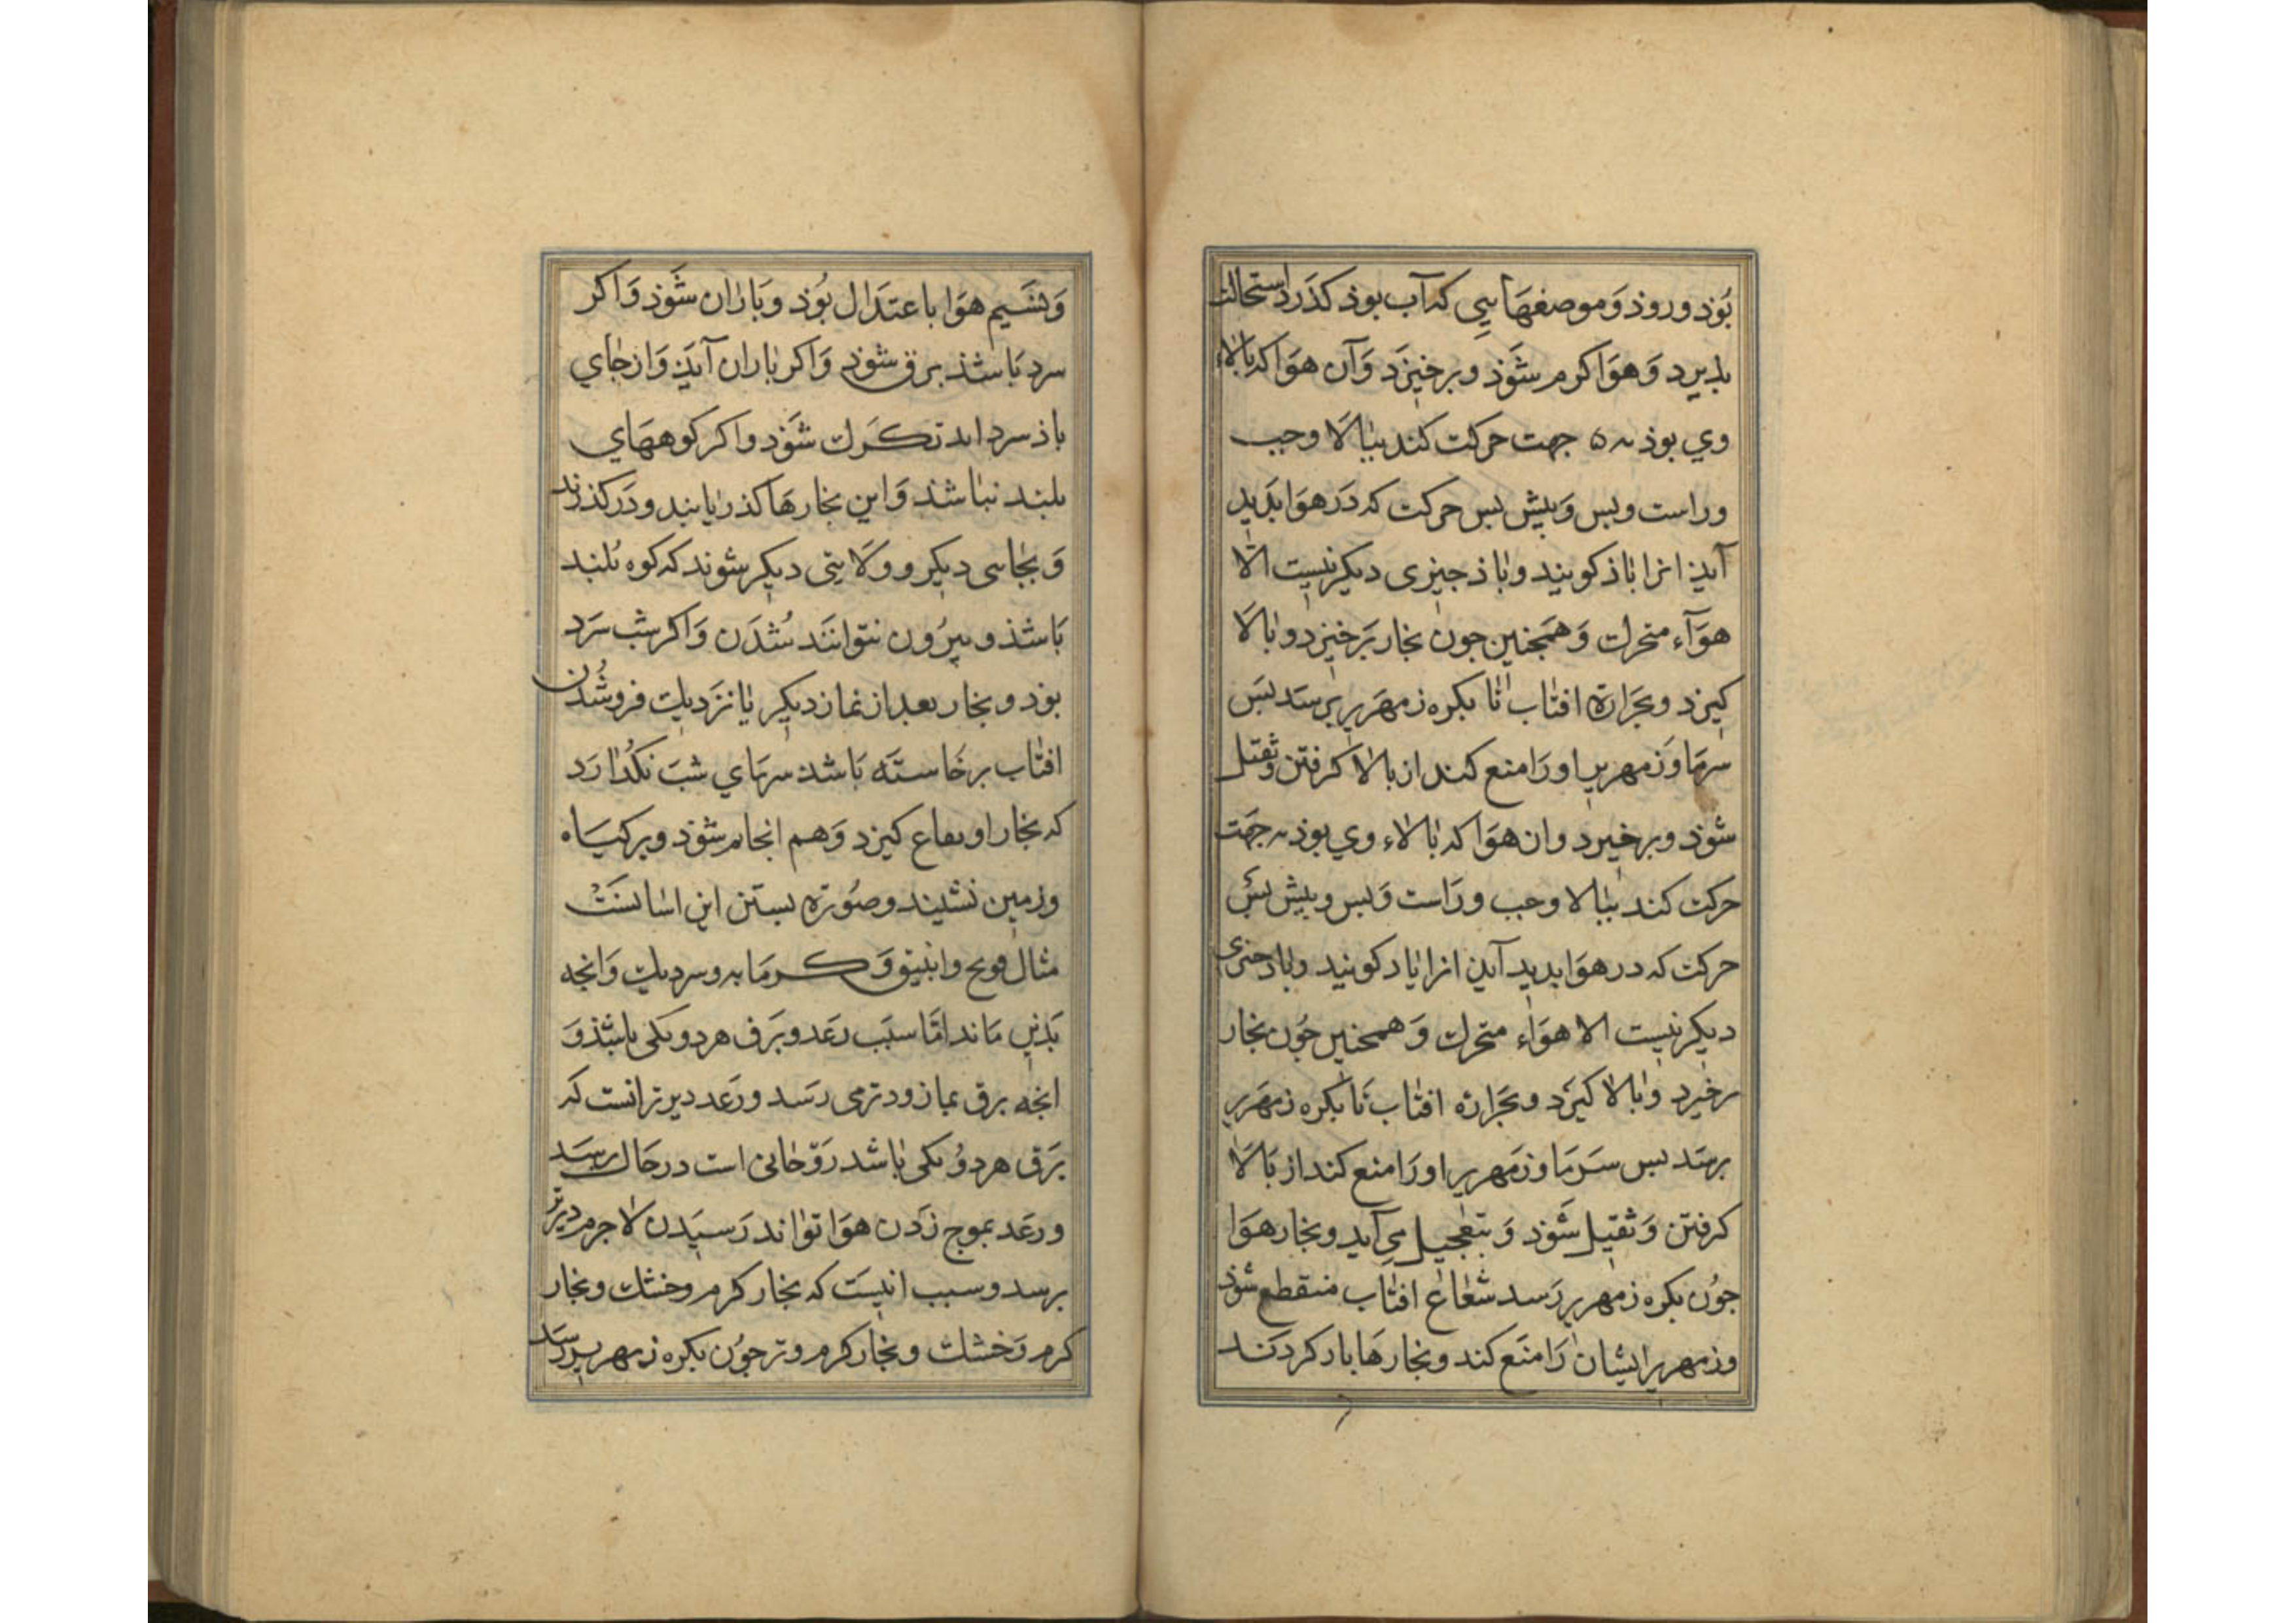 بُوَذ و روذ وَ موصغهَایی که آب بوذ کذَرد استحالت
بذیرد وَ هوَا کرم شوَذ و برخیزَد وَ آن هوَا که بالاء
وي بوذ به ۵ جهت حرکت کند ببٰالَا و جب
و راست و بس وَ بیش بس حرکت که دَر هوَا بَدید
آیذ انرا باذ کویند و باذ جیزی دیکر نیست الّا
هوَآء متحرك وَ همَجنین جون بخار بَرخیزد و بٰالَا
کیزد و بحَرارة افتٰاب تٰا بکره زمهَریر برسَد بسَ
سرمَا وَ زمهریر او رَا منع کند از بالٰا کرفتن و ثقیل
شوَذ و برخیرد و ان هوَا که بٰالٰاء وي بوذ به جهَت
حرکت کند ببٰالا و جب و رَاست وَ بس و بیش بسَ
حرکت که در هوَا بدید آین انرا یاد کویند و باد جنری
دیکر نیست الا هوَاء متحرك وَ همحنین جوُن بخار
برخیرد و بٰالٰا کیرَد و بحَرارة افتٰاب تَا بکره زمهَریر
برسَد بس سَرمَا و زمَهریر او رَا منع کند از بَالَا
کرفتن وَ ثقیل شَوذ وَ بتعٰجیل می آید و بخار هوَا
جوُن بکره زمهریر رَسد شعٰاعٰ افتٰاب منقطع شوَذ
و زمهریر ایشان رَا منَع کند و بخارهَا باد کردَند
وَ نسَیم هوَا باعتدَال بُوَذ و بَاران شوَذ وَ اکر
سرد بَاشذ برق شوَذ وَ اکر بٰاران آیَذ وَ از جٰاي
باذ سرد اید تکَرك شوَذ و اکر کوههَاي
بلبند نبٰاشذ وَ این بخارهَا کذر یابند و دَر کذرند
وَ بجٰاىی دیکر و ولَا یتی دیکر شوند که کوه بُلبند
بَاشذ و بیرُون نتوانَند شُدَن وَ اکر شب سَرَد
بوذ و بخار بعد از نماز دیکر یٰا نزَدیك فروشُدن
افتٰاب برخَاستَه بَاشذ سرمَاي شبَ نکُذٰارَد
که بخار او بقاع کیزد وَ هم انجا شوَذ و بر کیَاه
و زمین نشیند و صُورَة بستن این اسٰا نسَت
مثال قرع و انبیق وَ کرمَابه و سردیك وَ انجه
بَذین مَاند امّا سبَب رعَد و برَق هر دو یکی باشذ وَ
انجَه برق بما زودتر می رسَد و رعَد دیرتر انست که
برَق هر دوُ یکی بٰاشد رَوّحٰانی است در حَال رسَد
و رعَد بموج زَدن هوَا توٰاند رَسیَدن لٰا جرم دیرتر
برسد و سبب انیسَت که بخار کرم و خشك و بخار
کرم وَ خشك و بخار کرم و تر جوُن بکره زمهریر رسَد